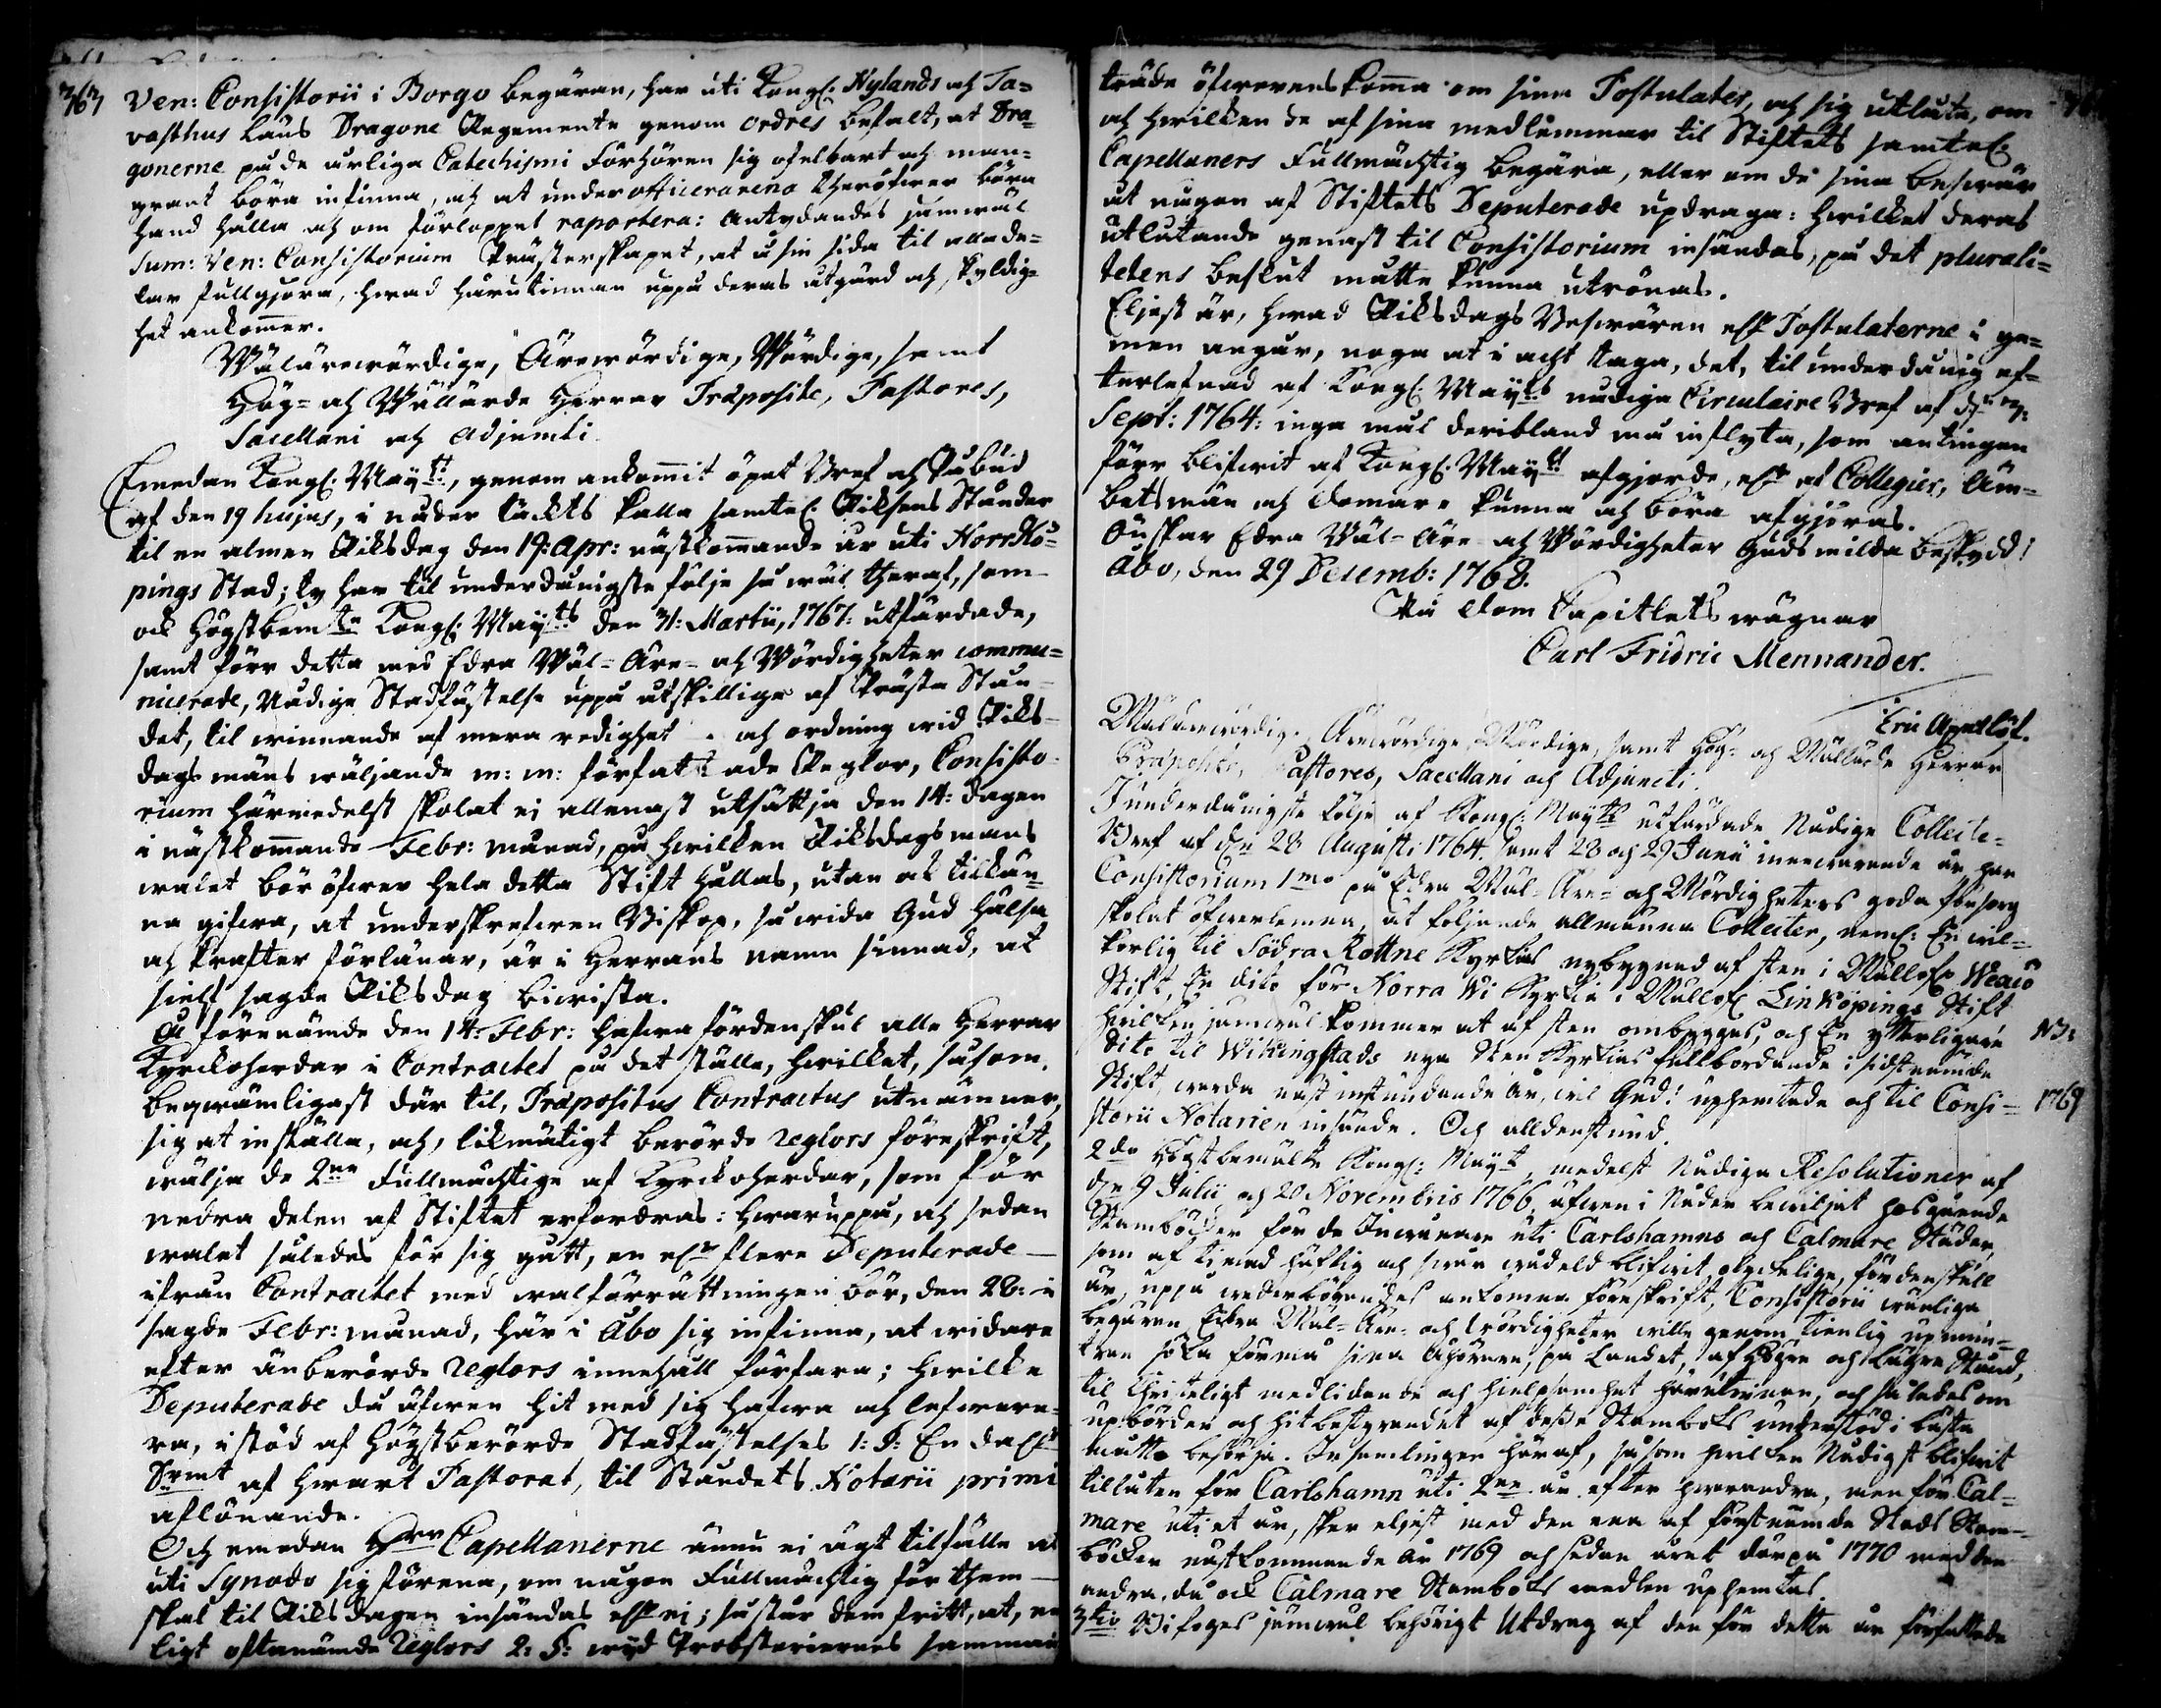 767
Ven: Consistorii i Borgo begäran, har uti Kongl: Nylands och Ta=
vasthus Läns Dragone Regemente genom ordres befalt, at Dra=
gonerne på de årliga Catechismi Förhören sig ofelbart och man=
grant böra infinna, och at underofficerarena theröfwer böra
hand hålla och om förloppet raportera: antydandes jemwäl
Sum: Ven: Consistorium Prästerskapet, at å sin sida til alla de=
lar fullgjöra, hwad härutinnan uppå deras åtgärd och skyldig=
het ankommer.
Wälärewördige, Ärewördige, Wördige, samt
Hög= och Wällärde Herrar Præposite, Pastores,
Sacellani och Adjuncti.
Emedan Kongl: Mayt:, genom ankommit öpet Bref och Påbud
af den 19 hujus, i nåder täckts kalla samtel: Riksens Ständer
til en almen Riksdag den 19: Apr: nästkommande år uti NorrKö=
pings Stad; ty har til underdånigste följe så wäl theraf, som
ock Högstbemte Kongl: Mayts den 31: Martii, 1767: utfärdade,
samt förr detta med Edra Wäl= Äre= och Wördigheter commu=
nicerade, Nådige Stadfästelse uppå åtskillige af Präste Stån=
det, til winnande af mera redighet och ordning wid Riks=
dags mäns wäljande m: m: författade Reglor, Consisto=
rium härmedelst skolat ej allenast utsättja den 14: dagen
i nästkommande Febr: månad, på hwilken Riksdagsmans
walet bör öfwer hela detta Stift hållas, utan ock tilkän=
na gifwa, at underskrefwen Biskop, så wida Gud hälsa
och krafter förlänar, är i Herrans namn sinnad, at
sielf sagde Riksdag biwista.
Å förenämde den 14: Febr: hafwa fördenskul alle Herrar
Kyrckoherdar i Contractet på det ställe, hwilket, såsom
beqwämligast där til, Præpositus Contractus utnämner,
sig at inställa, och, likmätigt berörde reglors föreskrift,
wälja de 2ne Fullmächtige af Kyrckoherdar, som för
nedra delen af Stiftet erfordras: hwaruppå, och sedan
walet således för sig gått, en eller flere Deputerade
ifrån Contractet med walförrättningen bör, den 28: i
sagde Febr: månad, här i Åbo sig infinna, at widare
efter änberörde reglors innehåll förfara; hwilke
Deputerade då äfwen hit med sig hafwa och lefwere=
ra, i stöd af Högstberörde Stadfästelses 1: §: En daler
Srmt af hwart Pastorat, til Ståndets Notarii primi
aflönande.
Och emedan Hrr Capellanerne ännu ei ägt tilfälle at
uti Synodo sig förena, om någon Fullmächtig för them
skal til Riksdagen insändas eller ej; så står dem fritt, at, en
ligt oftanämde reglors 2: §: wid Probsteriernes samman
träde öfwerenskomma om sina Postulater, och sig utlåta, om
och hwilken de af sina medlemmar til Stiftets samtel:
Capellaners Fullmächtig begära, eller om de sina beswär
åt någon af Stiftets Deputerade updraga: hwilket deras
utlåtande genast til Consistorium insändas, på det plurali=
tetens beslut måtte kunna utrönas.
Eljest är, hwad Riksdags Beswären eller Postulaterne i ge=
men angår, noga at i acht taga, det, til underdånig ef=
terlefnad af Kongl: Mayts nådige Circulaire Bref af
Sept: 1764: inga mål deribland må inflyta, som antingen
förr blifwit af Kongl: Mayt afgjorde, eller af Collegier, Äm=
betsmän och Domare kunna och böra afgjöras.
Önskar Edra Wäl= Äre och Wördigheter Guds milda beskydd!
Åbo, den 29 Decemb: 1768.
På Dom Capitlets wägnar
Carl Fridric Mennander.
Eric Appellöf.
Wälärewördige, Ärewördige, Wördige, samt Hög= och Wällärde Herrar
Præposite, Pastores, Sacellani och Adjuncti.
I underdånigste följe af Kongl: Mayts utfärdade Nådige Collecte=
Bref af den 28 Augusti 1764. samt 28 och 29 Junii innewarande år har
Consistorium 1mo på Edra Wäl= Äre= och Wördigheters goda försorg
skolat öfwerlemna, at följande allmänna Collecter, neml: En wil=
korlig til Södra Rottne Kyrkas nybygnad af sten i Wällofl: Wexiö
Stift, En dito för Norra Wi Kyrkia i Wällofl: Linköpings Stift
hwilken jemwäl kommer at af sten ombygges, och En ytterligare
dito til Wikingstads nya Sten Kyrkias fullbordande i sidstnämde
Stift, warda näst instundande år, wil Gud! uphemtade och til Consi=
storii Notarien insände. Och alldenstund
N3:
1769
2do Högstbemälte Kongl: Mayt, medelst Nådiga Resolutioner af
den 9 Julii och 20 Novembris 1766, äfwen i Nåder bewiljat hosgående
Stamböcker för de Inwånare uti Carlshamns och Calmare Städer,
som af timad häftig och swår wådeld blifwit olyckelige, fördenskull
är, uppå wederbörandes ankomna föreskrift, Consistorii wänliga
begäran, Edra Wäl= Äre= och Wördigheter wille genom tienlig upmun=
tran söka förmå sina Åhörare, på Landet, af högre och lägre Stånd,
til Christeligt medlidande och hielpsamhet härutinnan, och således om
upbörden och hitbestyrandet af desse Stamboks understöd i bästa
måtto besörja. Insamlingen häraf, såsom hwilken Nådigst blifwit
tillåten för Carlshamn uti 2ne år efter hwarandra, men för Cal=
mare uti et år, sker eljest med den ena af förstnämde Stads Stam=
böcker nästkommande År 1769 och sedan året därpå 1770 med den
andra, då ock Calmare Stamboks medlen uphemtas.
3tio Bifoges jämwäl behörigt Utdrag af den för detta år författade